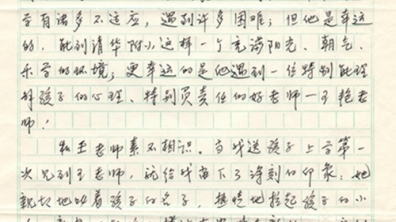 会有诸多不适应,遇到许多困难;但他是幸运
的,能到清华附小这样一个充满阳光、朝气、
乐学的环境;更幸运的是他遇到一位特别能理
解孩子的心理、特别负责任的好老师—王艳老
师!
和王老师素不相识。当我送孩子上学第一
次见到王老师,就给我留下了深刻的印象:她
亲切地喊着孩子的名字,热情地拉起孩子的小